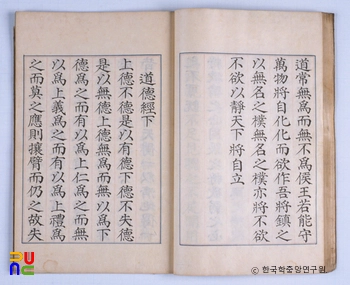 道常無爲而無不爲侯王若能守
萬物將自化化而欲作吾將鎭之
以無名之樸無名之樸亦將不欲
不欲以靜天下將自立
道德經下
上德不德是以有德下德不失德
是以無德上德無爲而無以爲下
德爲之而有以爲上仁爲之而無
以爲上義爲之而有以爲上禮爲
之而莫之應則攘臂而仍之故失
한국학중앙연구원